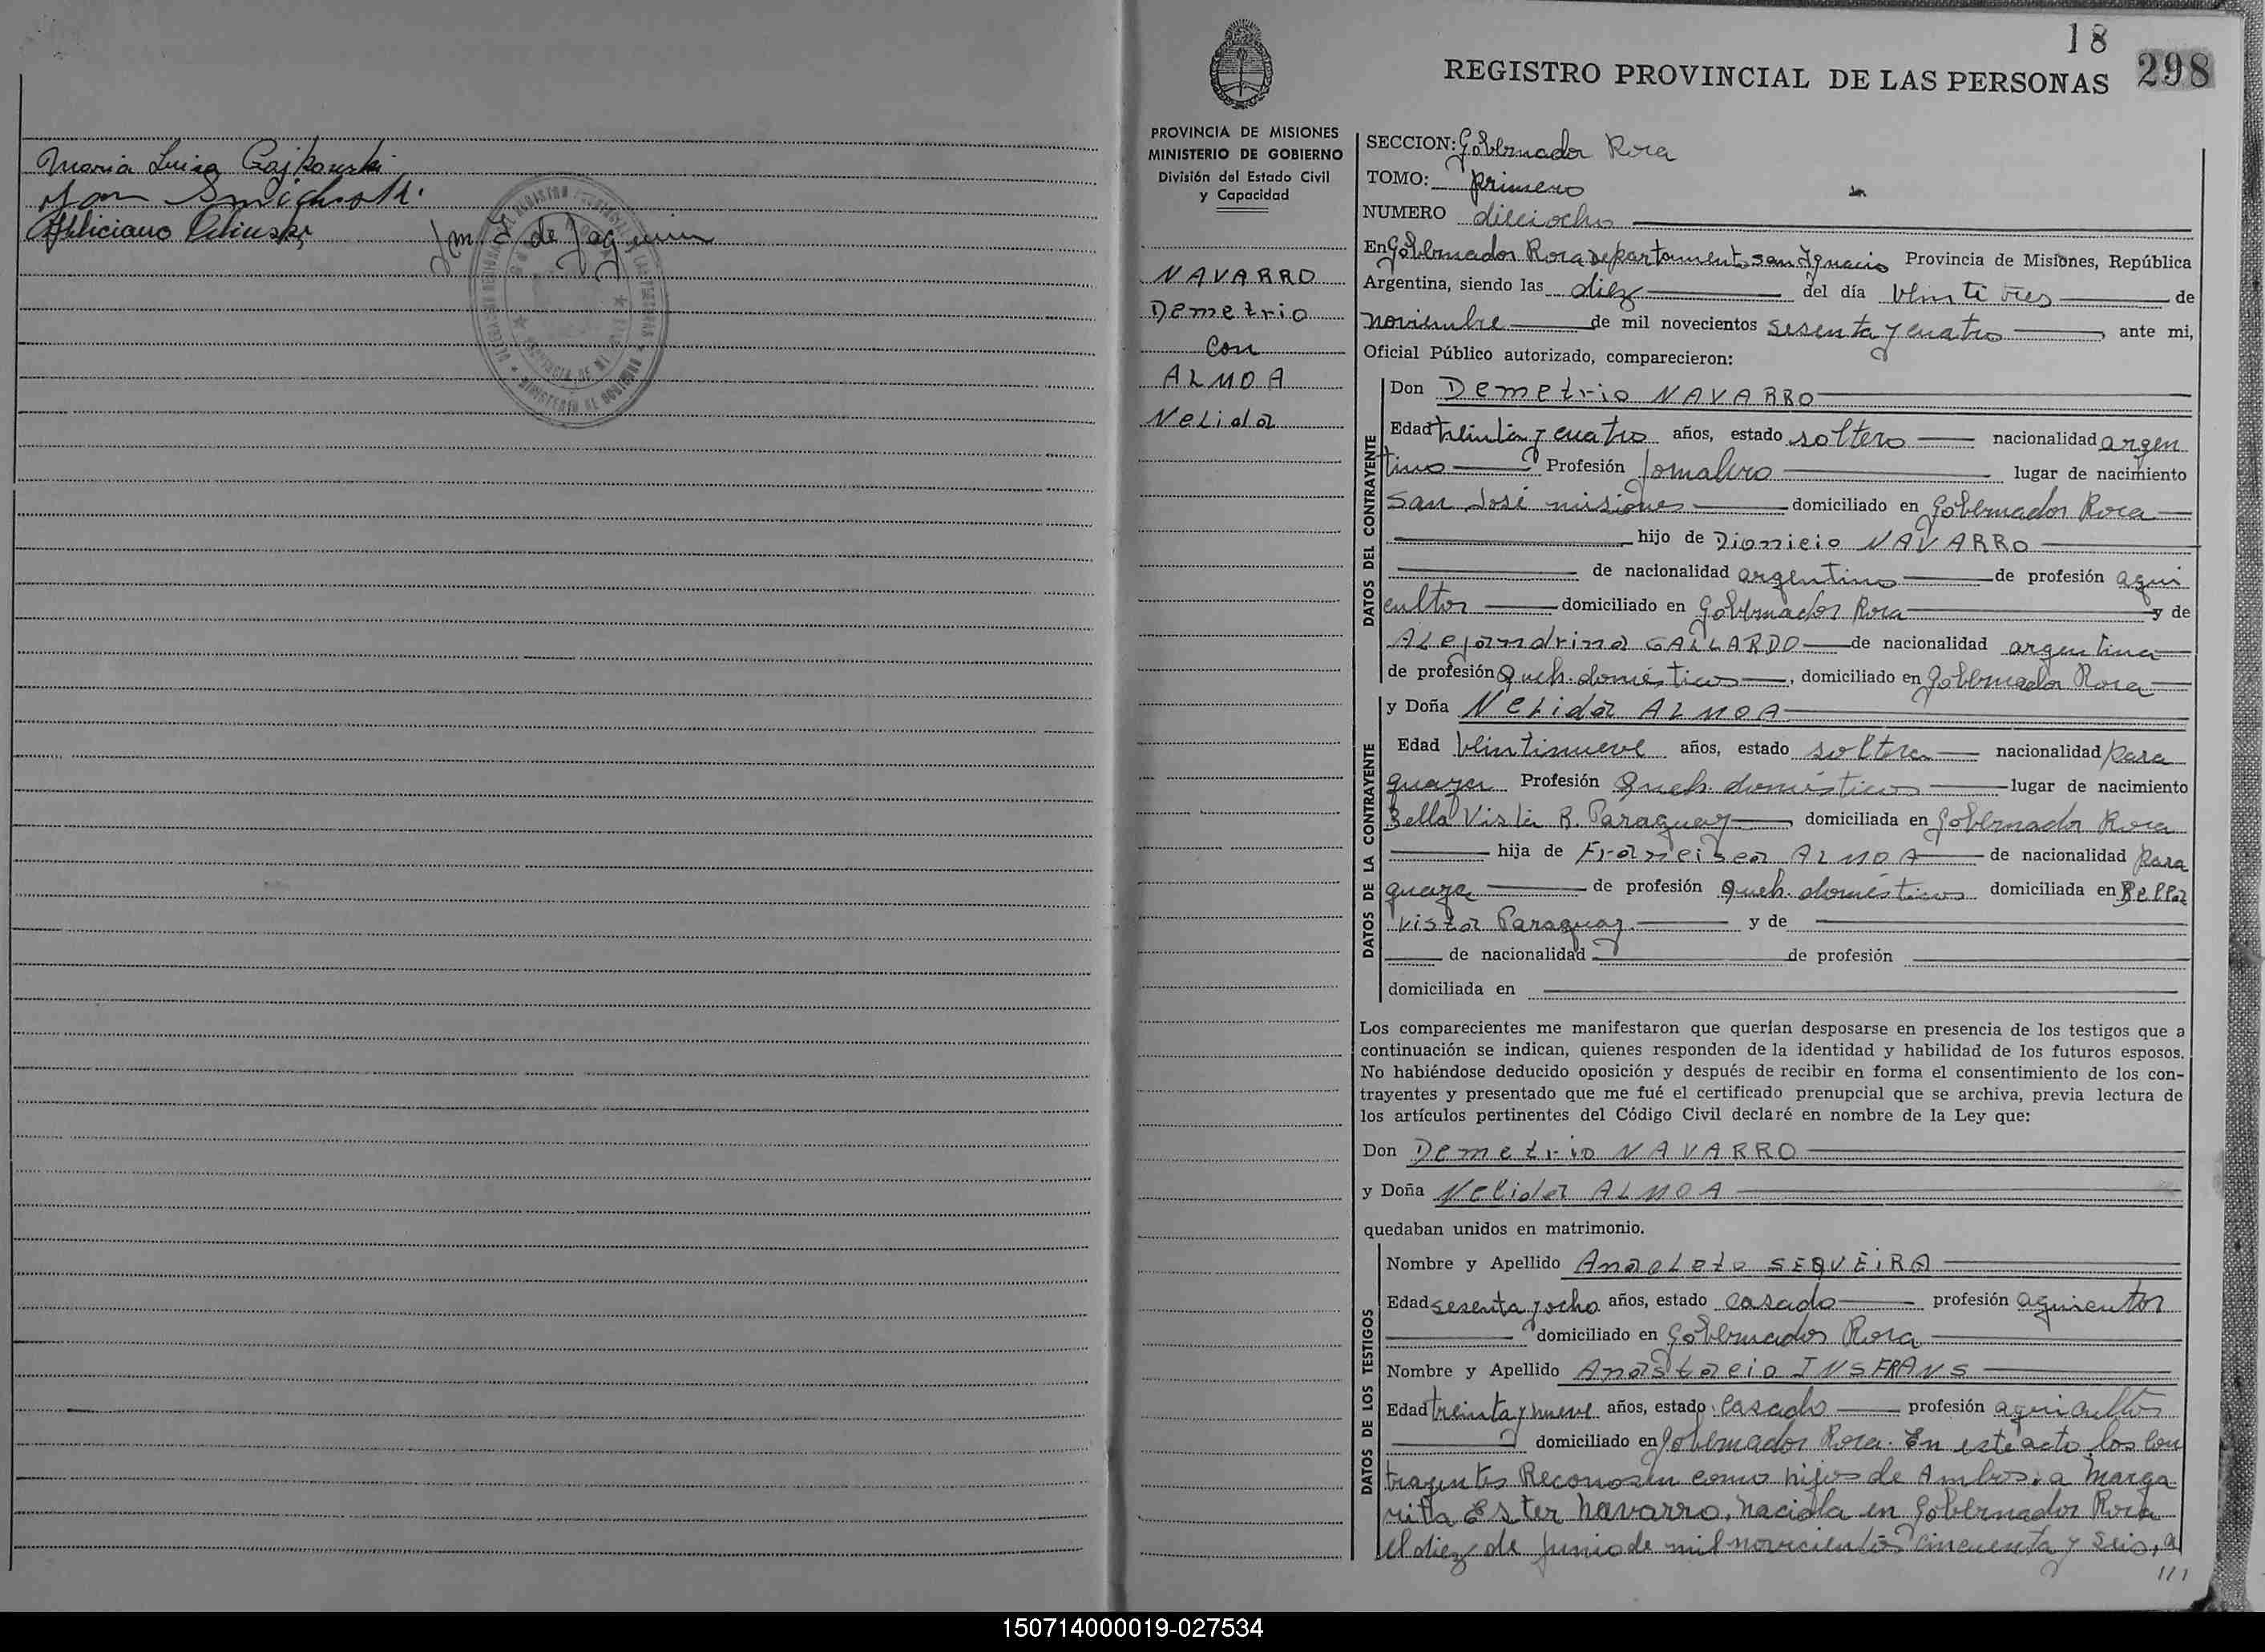 Maria Luisa Gajkowski
Feliciano
18
298
REGISTRO PROVINCIAL DE LAS PERSONAS
PROVINCIA DE MISIONES
MINISTERIO DE GOBIERNO
División del Estado Civil
y Capacidad
NAVARRO
Demetrio
Con
ALMOA
Nelida
SECCION: Gobernador Roca
TOMO: primero
NUMERO dieciocho
En Gobernador Roca departamento san Ignacio Provincia de Misiones, República
Argentina, siendo las diez del día veinti tres de
noviembre de mil novecientos sesenta y cuatro, ante mi,
Oficial Público autorizado, comparecieron:
DATOS DEL CONTRAYENTE
Don Demetrio NAVARRO
Edad treinta y cuatro años, estado soltero nacionalidad argen
tino Profesión Jornalero lugar de nacimiento
San José misiones domiciliado en Gobernador Roca
hijo de Dionicio NAVARRO
de nacionalidad argentino de profesión agri
cultor domiciliado en Gobernador Roca y de
ALejandrina GALLARDO de nacionalidad argentina
de profesión Queh. domésticos, domiciliado en Gobernador Roca
DATOS DE LA CONTRAYENTE
y Doña NeLida ALMOA
Edad veintinueve años, estado soltera nacionalidad para
guaya Profesión Queh. domésticos lugar de nacimiento
Bella Vista R. Paraguay domiciliada en Gobernador Roca
hija de Francisca ALMOA de nacionalidad Para
guaya de profesión Queh. domésticos domiciliada en Bella
Vista Paraguay. y de
de nacionalidad de profesión
domiciliada en
Los comparecientes me manifestaron que querían desposarse en presencia de los testigos que a
continuación se indican, quienes responden de la identidad y habilidad de los futuros esposos.
No habiéndose deducido oposición y después de recibir en forma el consentimiento de los con-
trayentes y presentado que me fué el certificado prenupcial que se archiva, previa lectura de
los artículos pertinentes del Código Civil declaré en nombre de la Ley que:
Don Demetrio NAVARRO
y Doña Nelida ALMOA
quedaban unidos en matrimonio.
DATOS DE LOS TESTIGOS
Nombre y Apellido Anacleto SEQUEiRA
Edad sesenta y ocho años, estado casado profesión agricultor
domiciliado en Gobernador Roca
Nombre y Apellido Anastacio INSFRANS
Edad treinta y nueve años, estado casado profesión agricultor
domiciliado en Gobernador Roca. En este acto los con
trayentes Reconosen como hijos de Ambos, a Marga
rita Ester Navarro, nacida en Gobernador Roca
el diez de junio de mil novecientos cincuenta y seis, a
///
150714000019-027534